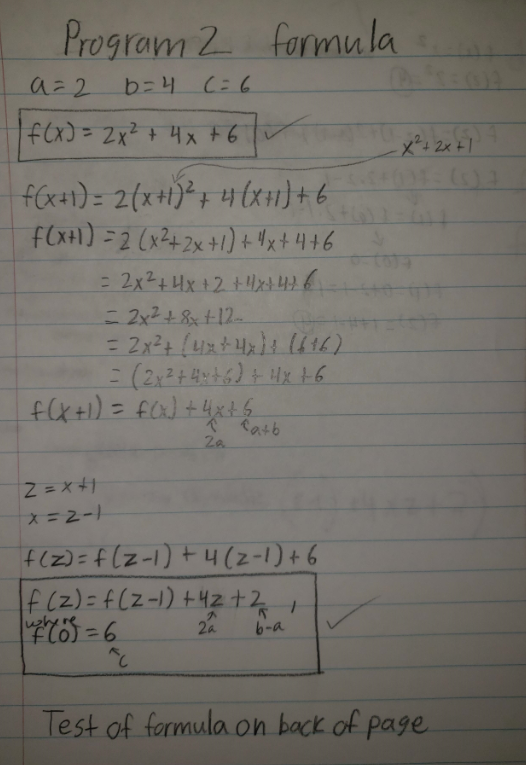 Program 2 formula
a=2 b=4 c=6
f(x) = 2x² + 4x + 6 ✓
x²+2x+1
f(x+1) = 2(x+1)² + 4(x+1) + 6
f(x+1) = 2(x²+2x+1) + 4x + 4 + 6
= 2x² + 4x + 2 + 4x + 4 + 6
= 2x² + 8x + 12
= 2x² + (4x + 4x) + (6+6)
= (2x² + 4x + 6) + 4x + 6
f(x+1) = f(x) + 4x + 6
2a a+b
z = x+1
x = z-1
f(z) = f(z-1) + 4(z-1) + 6
f(z) = f(z-1) + 4z + 2 ,
where
f(0) = 6 2a b-a ✓
c
Test of formula on back of page